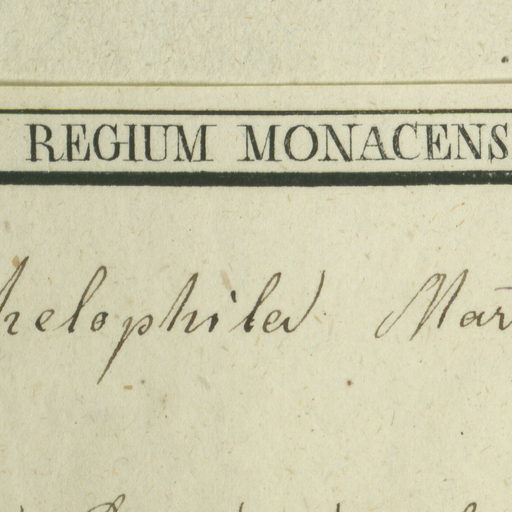 REGIUM MONACENS
helophila Mar